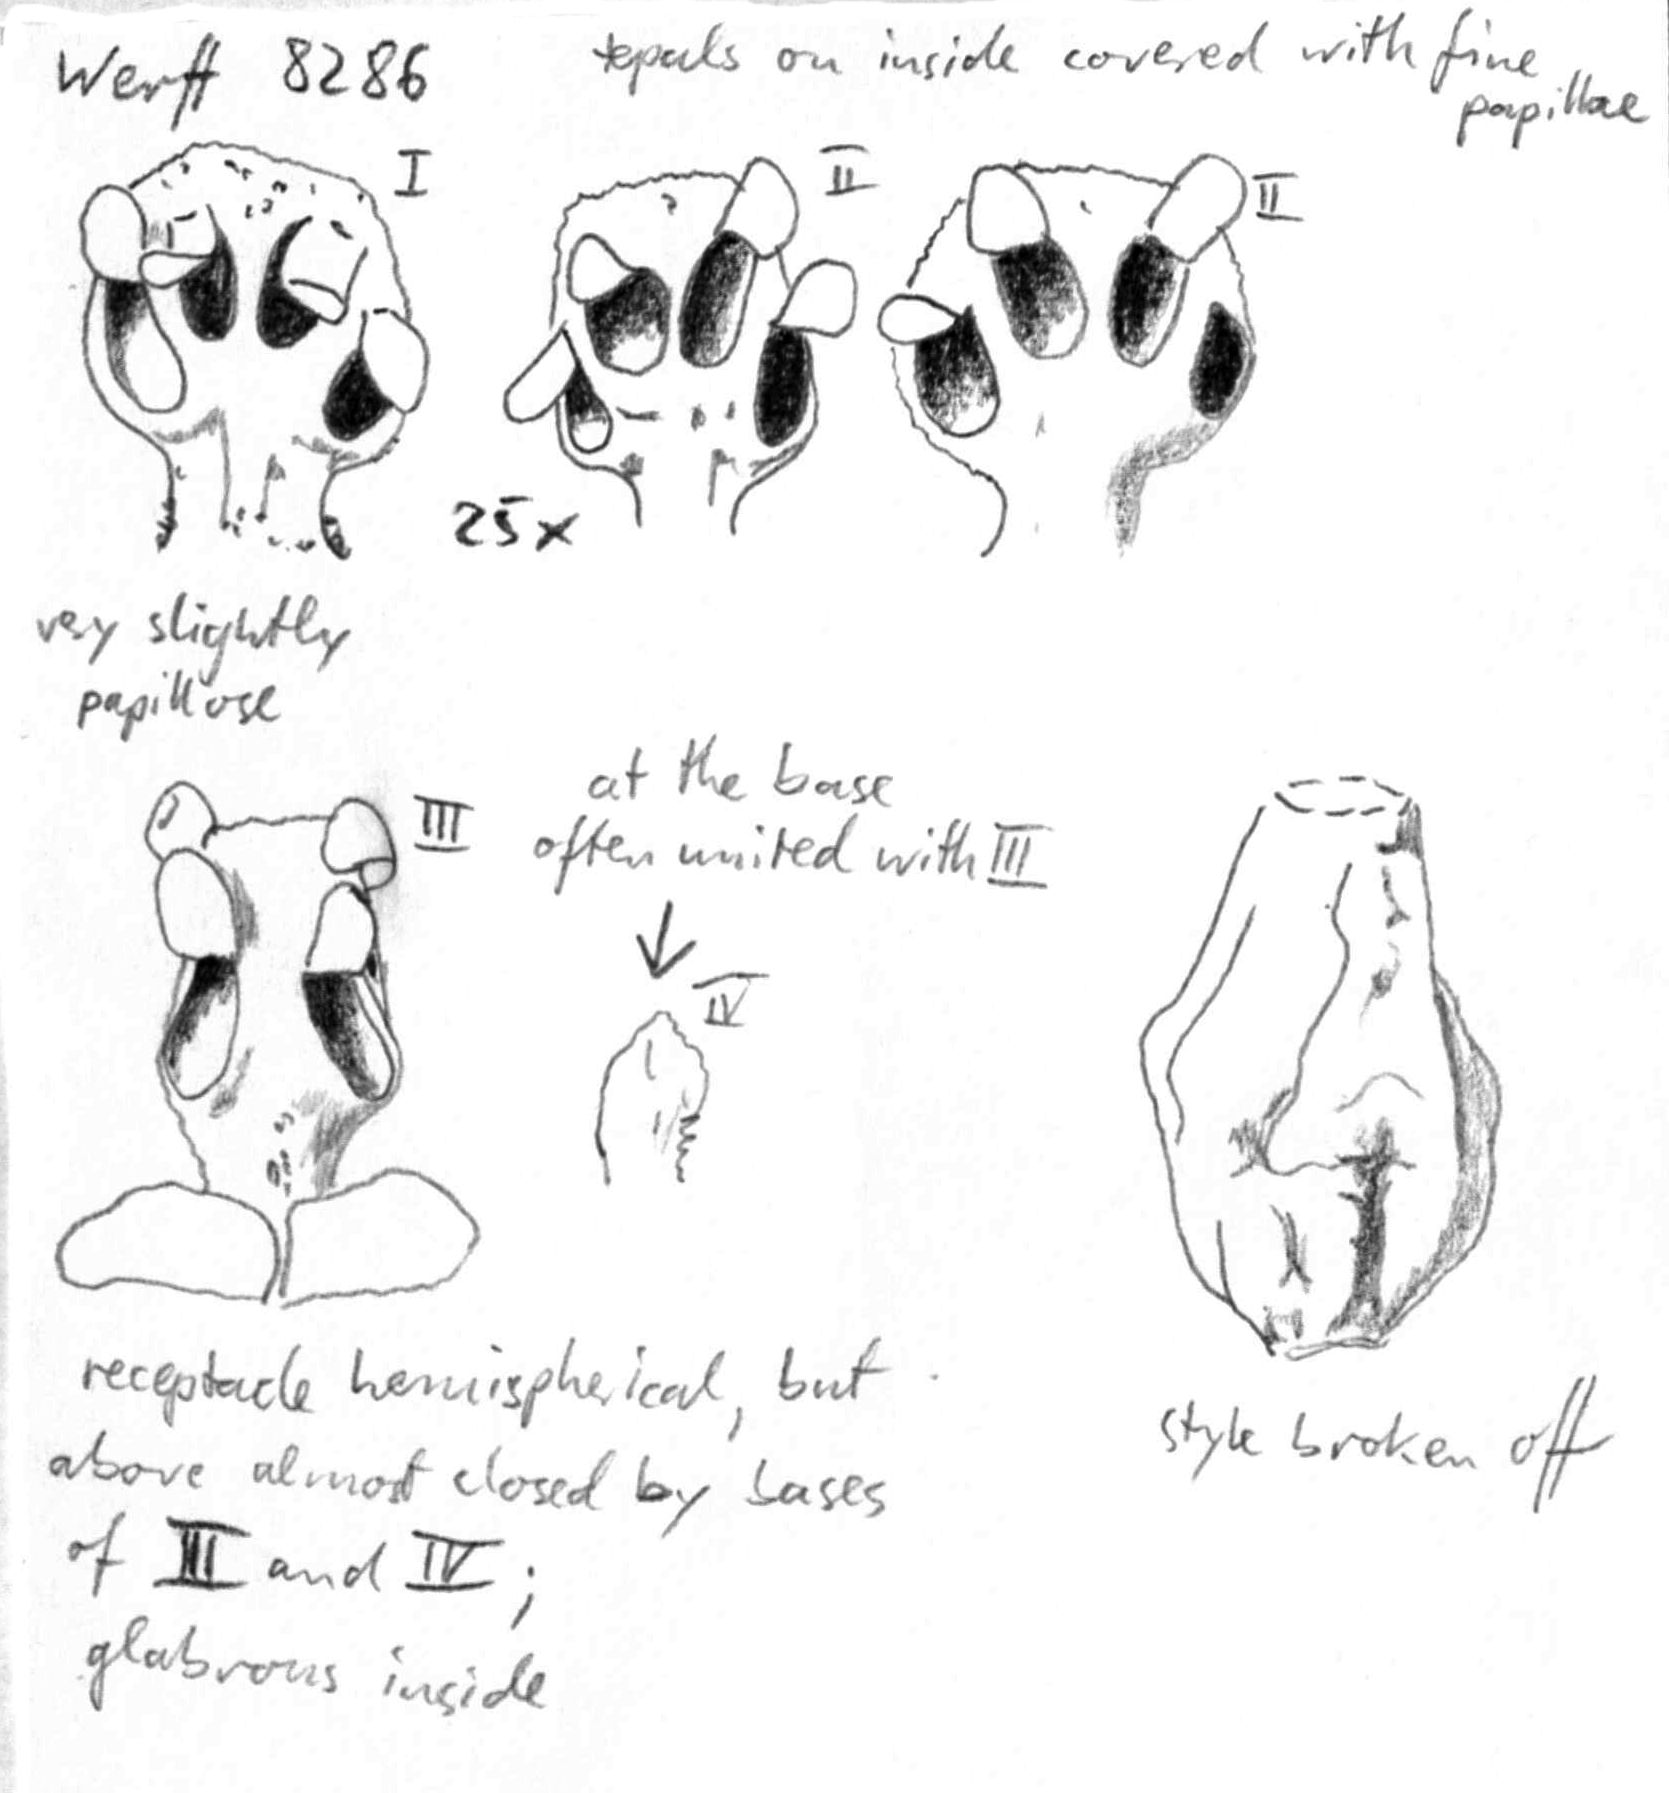 Werff 8286
tepals on inside covered with fine
papillae
I
II
II
25x
very slightly
papillose
III
at the base
often united with III
IV
receptacle hemispherical, but
above almost closed by bases
of III and IV;
glabrous inside
style broken off